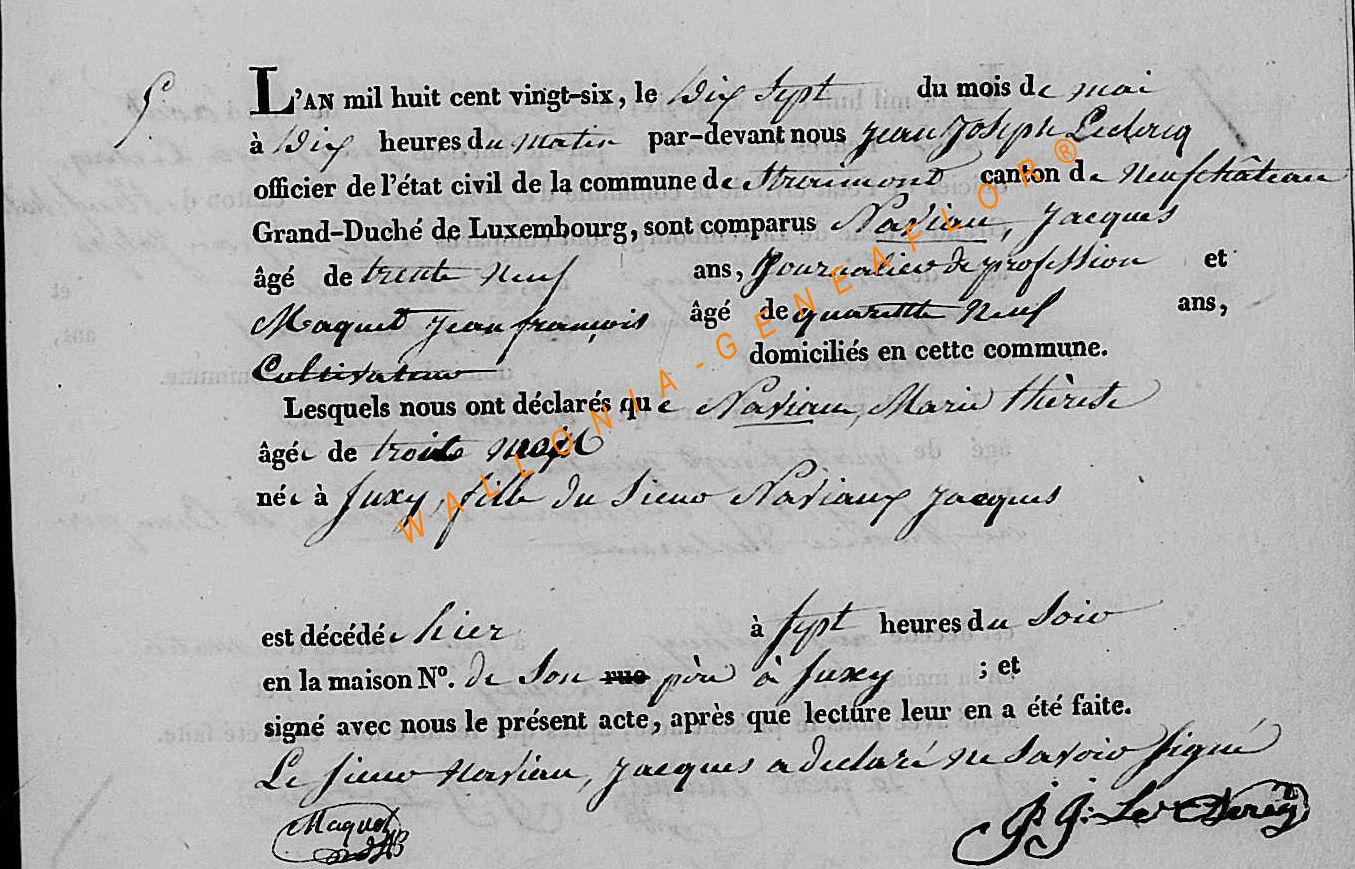 5.
L'AN mil huit cent vingt-six, le Dix Sept du mois de mai
à Dix heures du matin par-devant nous Jean Joseph Leclercq
officier de l'état civil de la commune de Straimont canton de Neufchâteau
Grand-Duché de Luxembourg, sont comparus Naviau, Jacques
âgé de trente neuf ans, Journalier de profession et
Maquet Jean françois âgé de quarante neuf ans,
Cultivateur domiciliés en cette commune.
Lesquels nous ont déclarés que Naviau, Marie thèrese
âgée de trois mois
née à Juxy, fille du Sieur Naviaux Jacques
est décédée hier à Sept heures du Soir
en la maison Nº. de Son rue père à Juxy ; et
signé avec nous le présent acte, après que lecture leur en a été faite.
Le Sieur Naviau, Jacques a declaré ne Savoir Signé
Maquet J. J. Le Clercq
WALLONIA-GENEAFLOR®